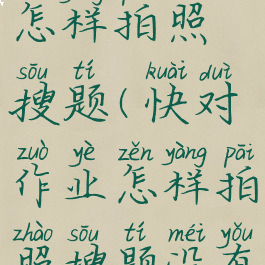 怎样拍照
sōu tí kuài duì
搜题(快对
zuò yè zěn yàng pāi
作业怎样拍
zhào sōu tí méi yǒu
照搜题没有